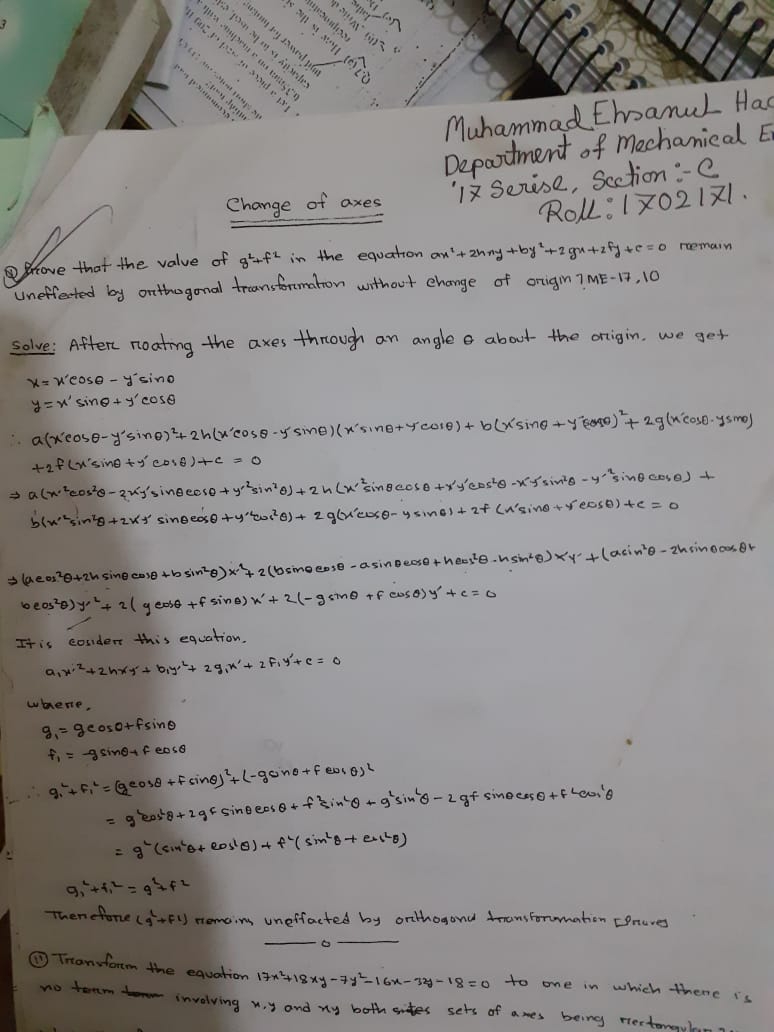 Muhammad Ehsanul Haq
Department of Mechanical E
'17 Serise, Section :- C
Roll: 1702171.
Change of axes
Prove that the value of g²+f² in the equation ax²+2hxy+by²+2gx+2fy+c=0 remain
uneffected by orthogonal transformation without change of origin? ME-17,10
Solve: After roating the axes through an angle θ about the origin, we get
x = x'cosθ - y'sinθ
y = x'sinθ + y'cosθ
∴ a(x'cosθ-y'sinθ)²+2h(x'cosθ-y'sinθ)(x'sinθ+y'cosθ)+b(x'sinθ+y'cosθ)²+2g(x'cosθ-ysinθ)
+2f(x'sinθ+y'cosθ)+c = 0
⇒ a(x'²cos²θ-2x'y'sinθcosθ+y'²sin²θ)+2h(x'²sinθcosθ+x'y'cos²θ-x'y'sin²θ-y'²sinθcosθ)+
b(x'²sin²θ+2x'y'sinθcosθ+y'²cos²θ)+2g(x'cosθ-y'sinθ)+2f(x'sinθ+y'cosθ)+c=0
⇒ (acos²θ+2hsinθcosθ+bsin²θ)x'²+2(bsinθcosθ-asinθcosθ+hcos²θ-hsin²θ)x'y'+(asin²θ-2hsinθcosθ+
bcos²θ)y'²+2(gcosθ+fsinθ)x'+2(-gsinθ+fcosθ)y'+c=0
It is cosider this equation.
a₁x'²+2hx'y'+b₁y'²+2g₁x'+2f₁y'+c=0
where,
g₁ = gcosθ+fsinθ
f₁ = -gsinθ+fcosθ
∴ g₁²+f₁² = (gcosθ+fsinθ)²+(-gsinθ+fcosθ)²
= g²cos²θ+2gfsinθcosθ+f²sin²θ+g²sin²θ-2gfsinθcosθ+f²cos²θ
= g²(sin²θ+cos²θ)+f²(sin²θ+cos²θ)
g₁²+f₁² = g²+f²
Therefore (g²+f²) remains uneffacted by orthogonal transforumation
Transform the equation 17x²+18xy-7y²-16x-32y-18=0 to one in which there is
no term involving x,y and xy both sets of axes being rectangular